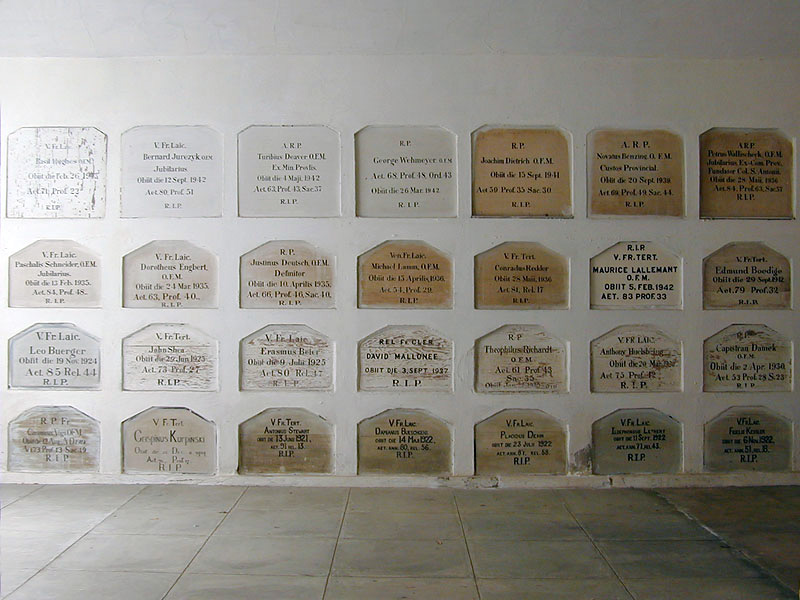 V. Fr. Laic.
Basil Hughes O.F.M.
Obiit die Feb. 26,
Aet. 71, Prof. 22
R.I.P.
V. Fr. Laic.
Bernard Jurczyk O.F.M.
Jubilarius
Obiit die 12 Sept. 1942
Aet. 80, Prof. 51
R.I.P.
A.R.P.
Turibius Deaver O.F.M.
Ex. Min. Provlis.
Obiit die 4 Maji, 1942
Aet. 63, Prof. 43, Sac. 37
R.I.P.
R.P.
George Wehmeyer O.F.M.
Aet. 68, Prof. 48, Ord. 43
Obiit die 26 Mar. 1942
R.I.P.
R.P.
Joachim Dietrich O.F.M.
Obiit die 15 Sept. 1941
Aet 59 Prof. 35 Sac. 30
R.I.P.
A.R.P.
Novatus Benzing O.F.M.
Custos Provincial
Obiit die 20 Sept. 1939
Aet. 69, Prof. 49 Sac. 44
R.I.P.
A.R.P.
Petrus Wallischeck, O.F.M.
Jubilarius, Ex-Com. Prov.
Fundator Col. S. Antoni.
Obiit die 28 Maii, 1936
Aet. 84, Prof. 63, Sac. 57
R.I.P.
V. Fr. Laic.
Paschalis Schneider, O.F.M.
Jubilarius.
Obiit die 13 Feb. 1935.
Aet. 84, Prof. 48.
R.I.P.
V. Fr. Laic.
Dorotheus Englert,
O.F.M.
Obiit die 24 Mar. 1935.
Aet. 63, Prof. 40.
R.I.P.
R.P.
Justinus Deutsch, O.F.M.
Definitor
Obiit die 10. Aprilis 1935.
Aet. 66, Prof. 46, Sac. 40.
R.I.P.
Ven. Fr. Laic.
Michael Lamm, O.F.M.
Obiit die 15 Aprilis, 1936.
Aet. 54, Prof. 29.
R.I.P.
V. Fr. Tert.
Conradus Redder
Obiit 28 Maii, 1936
Aet. 81. Rel. 17
R.I.P.
R.I.P.
V. FR. TERT.
MAURICE LALLEMANT
OBIIT 5, FEB. 1942
AET. 83 PROF. 33
V. Fr. Tert.
Edmund Boedige
Obiit die 29 Sept. 1942
Aet. 79 Prof. 32
R.I.P.
V. Fr. Laic.
Leo Buerger.
Obfit die 19 Nov. 1924
Aet. 85 Rel. 44
R.I.P.
V. Fr. Tert.
John Shea
Obiit die 29 Jun. 1925
Aet. 73 Prof. 27
R.I.P.
V. Fr. Laic.
Erasmus Beier
Obiit die 9 Julii 1925
Aet. 80 Rel. 47
R.I.P.
DAVID MALLONEE
OBIIT DIE 3, SEPT. 1927
R.I.P.
R.P.
Theophilus Richardt
O.F.M.
Aet. 61 Prof 43
Sac. 35
V. FR. LAIC.
Anthony
Obiit die 20
Aet. 75 Prof. 42
R.I.P.
V. Fr. Laic.
Capistran Damek
O.F.M.
Obiit die 2 Apr. 1930.
Aet. 53 Prof. 28
R.I.P.
R.P. Fr.
R.I.P.
V. Fr. Tert.
Crispinus Kurpinski
Obiit die
R.I.P.
V. Fr. Tert.
Antonius Stewart
obiit die 13 Junii 1921.
R.I.P.
V. Fr. Laic.
Damianus
obiit die 14 Maii 1922.
aet. ann. 80, rel. 56.
R.I.P.
V. Fr. Laic.
Placidus Dehm
obiit die 23 Julii 1922
R.I.P.
V. Fr. Laic.
obiit die 11 Sept. 1922
aet. ann. 71, rel. 43.
R.I.P.
V. Fr. Laic.
obiit die 6 Nov. 1922,
R.I.P.